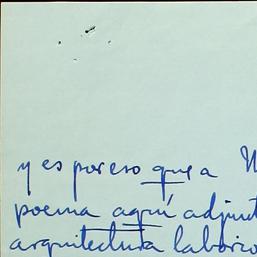 y es por eso que a
poema aquí adjunt
arquitectura laborio